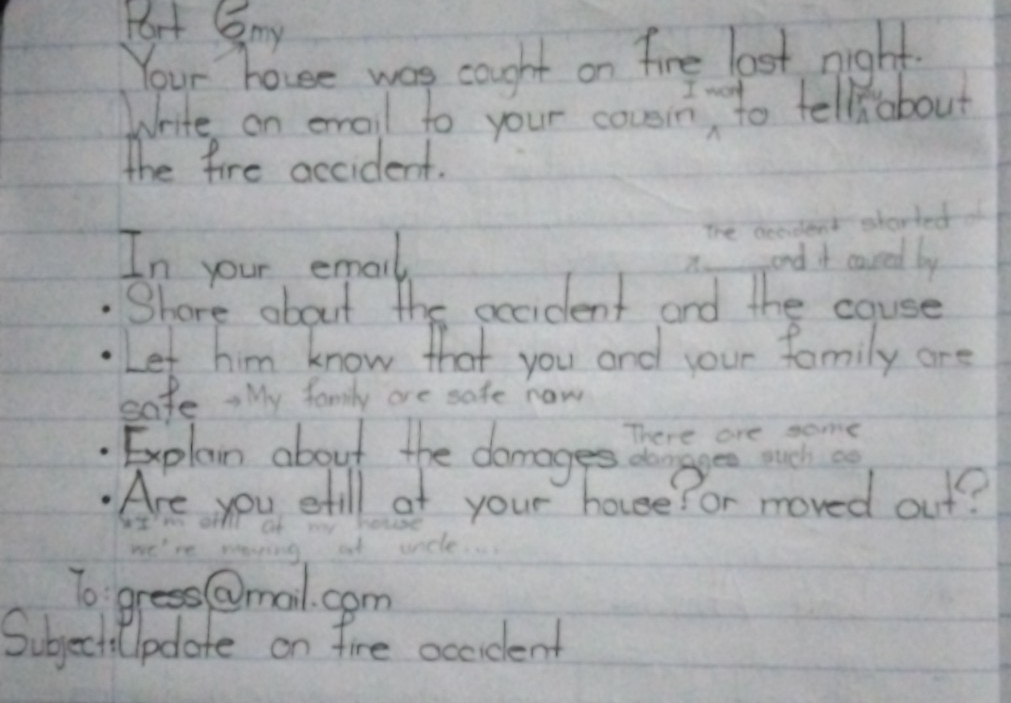 Part 6
my
Your house was caught on fire last night.
I want
Write an email to your cousin to tell about
the fire accident.
The accident started
In your email, and it caused by
• Share about the accident and the cause
• Let him know that you and your family are
safe → My family are safe now
There are some
• Explain about the damages damages such as
• Are you still at your house? or moved out?
I'm still at my house
we're moving at uncle...
To: gress@mail.com
Subject: Update on fire accident